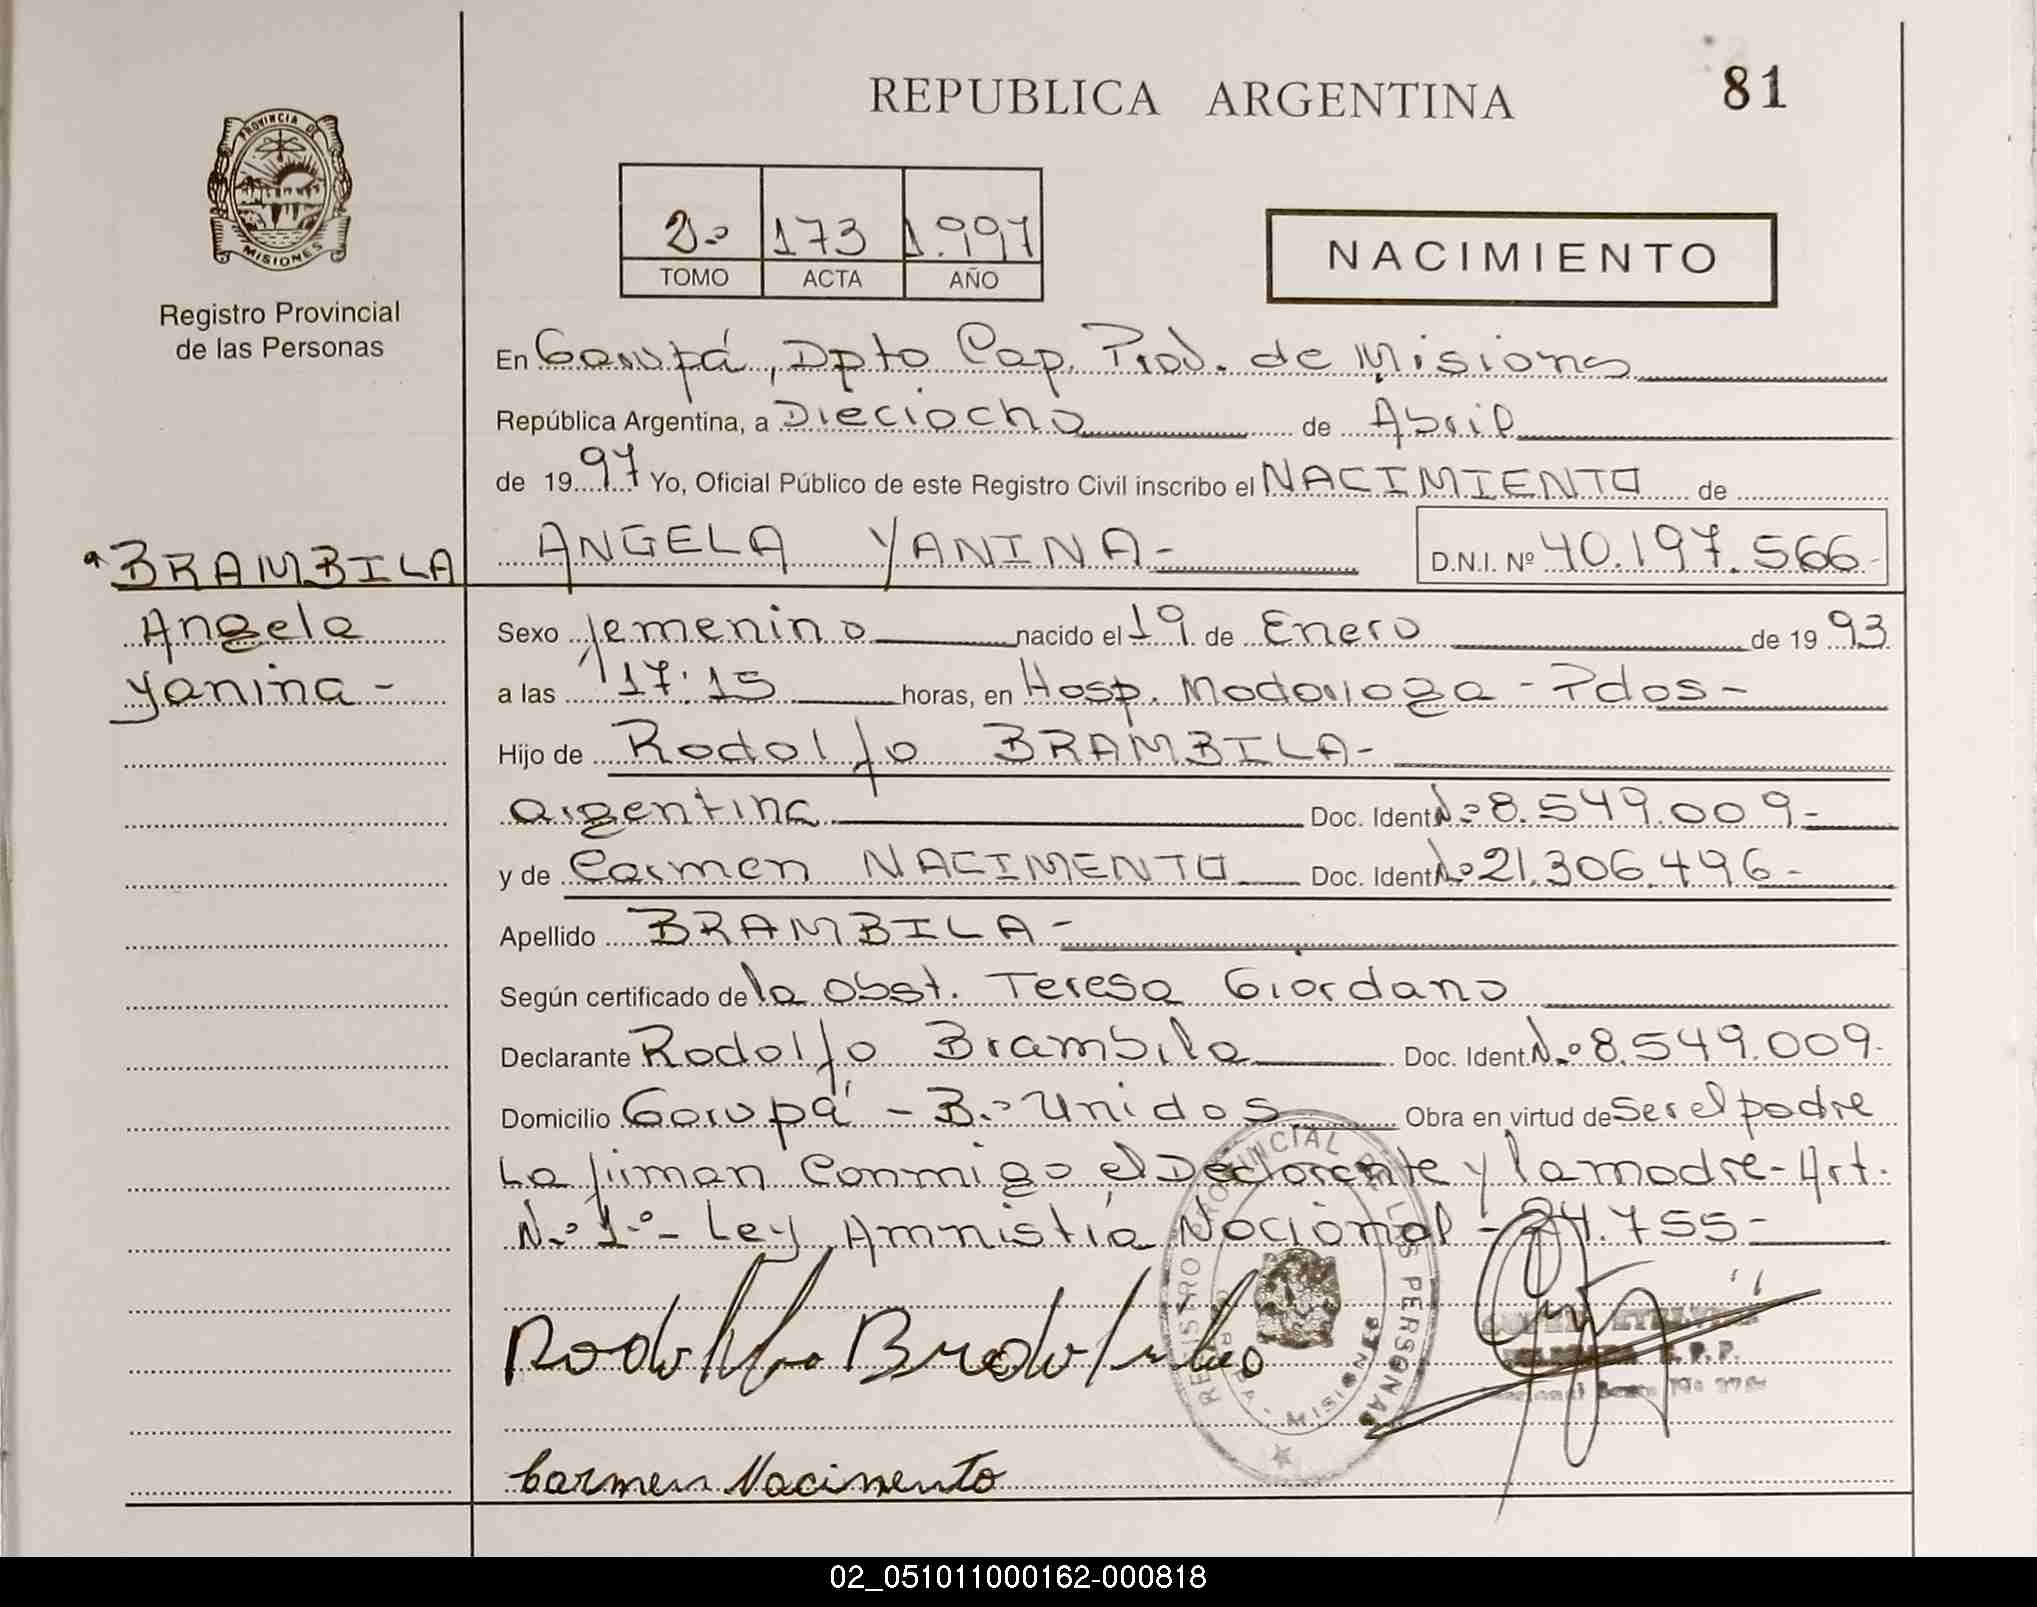 REPUBLICA ARGENTINA
81
PROVINCIA DE
MISIONES
Registro Provincial
de las Personas
2º 173 1.997
TOMO ACTA AÑO
NACIMIENTO
En Garupá, Dpto Cap. Prov. de Misiones
República Argentina, a Dieciocho de Abril
de 1997 Yo, Oficial Público de este Registro Civil inscribo el NACIMIENTO de
BRAMBILA
Angela
Yanina -
ANGELA YANINA - D.N.I. Nº 40.197.566-
Sexo femenino nacido el 19 de Enero de 1993
a las 17:15 horas, en Hosp. Madariaga - Pdas -
Hijo de Rodolfo BRAMBILA -
argentina Doc. Ident Nº 8.549.009 -
y de Carmen NACIMENTO Doc. Ident Nº 21.306.496 -
Apellido BRAMBILA -
Según certificado de la Obst. Teresa Giordano
Declarante Rodolfo Brambila Doc. Ident. Nº 8.549.009-
Domicilio Garupá - Bº Unidos Obra en virtud de Ser el padre
La firman Conmigo el Declarante y la madre - Art.
Nº 1º - Ley Amnistía Nacional - 24.755 -
REGISTRO PROVINCIAL DE LAS PERSONAS
MISIONES
Carmen Nacimento
02_051011000162-000818